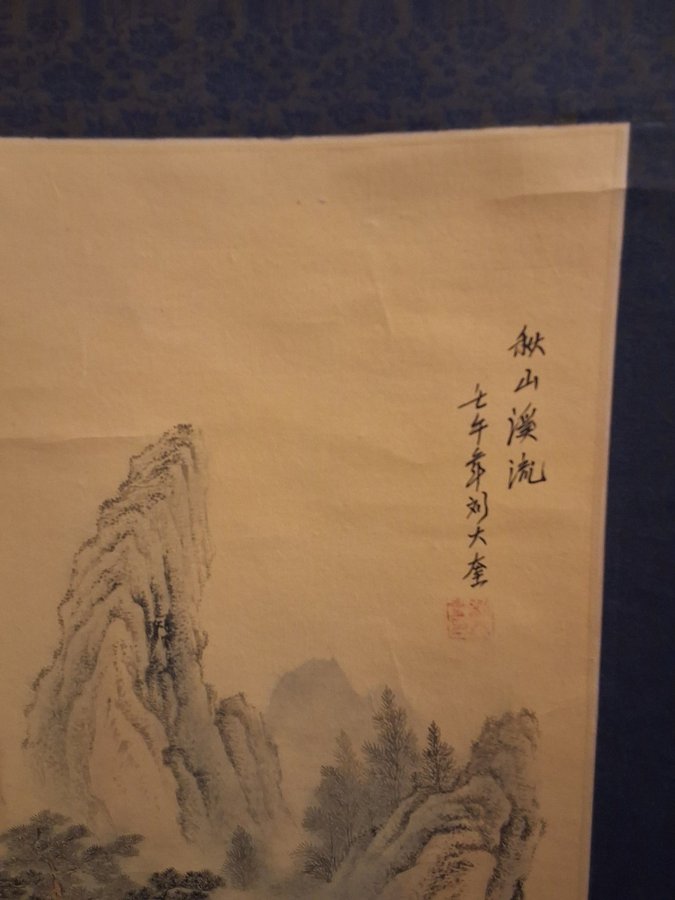 秋山溪流
壬午年刘大奎